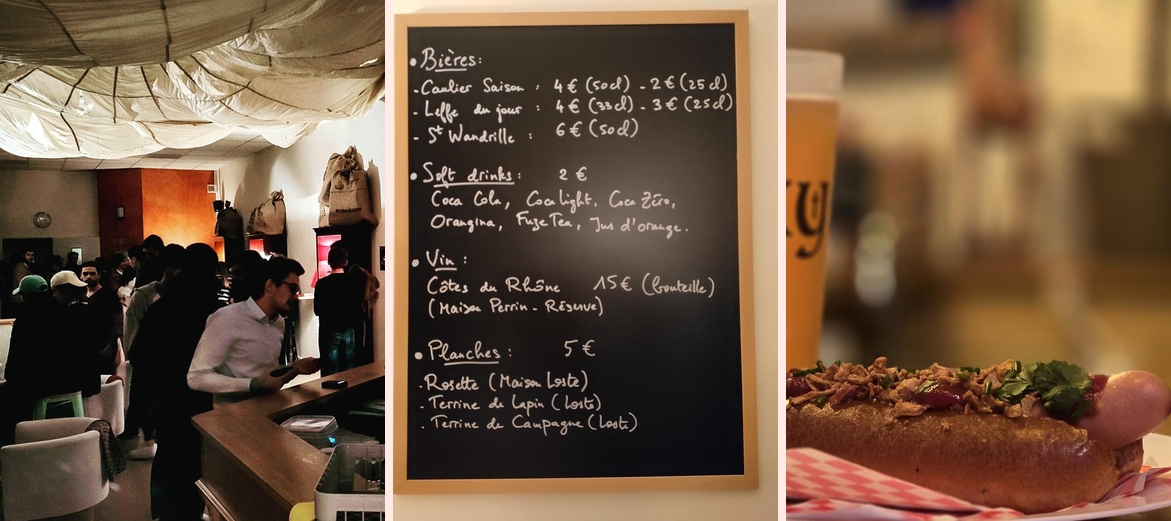 • Bières:
- Caulier Saison : 4 € (50cl) - 2 € (25cl)
- Leffe du jour : 4 € (33cl) - 3 € (25cl)
- St Wandrille : 6 € (50cl)
• Soft drinks : 2 €
Coca Cola, Coca light, Coca Zéro,
Orangina, Fuze Tea, Jus d'orange.
• Vin :
Côtes du Rhône 15 € (bouteille)
(Maison Perrin - Réserve)
• Planches : 5 €
. Rosette (Maison Loste)
. Terrine de Lapin (Loste)
. Terrine de Campagne (Loste)